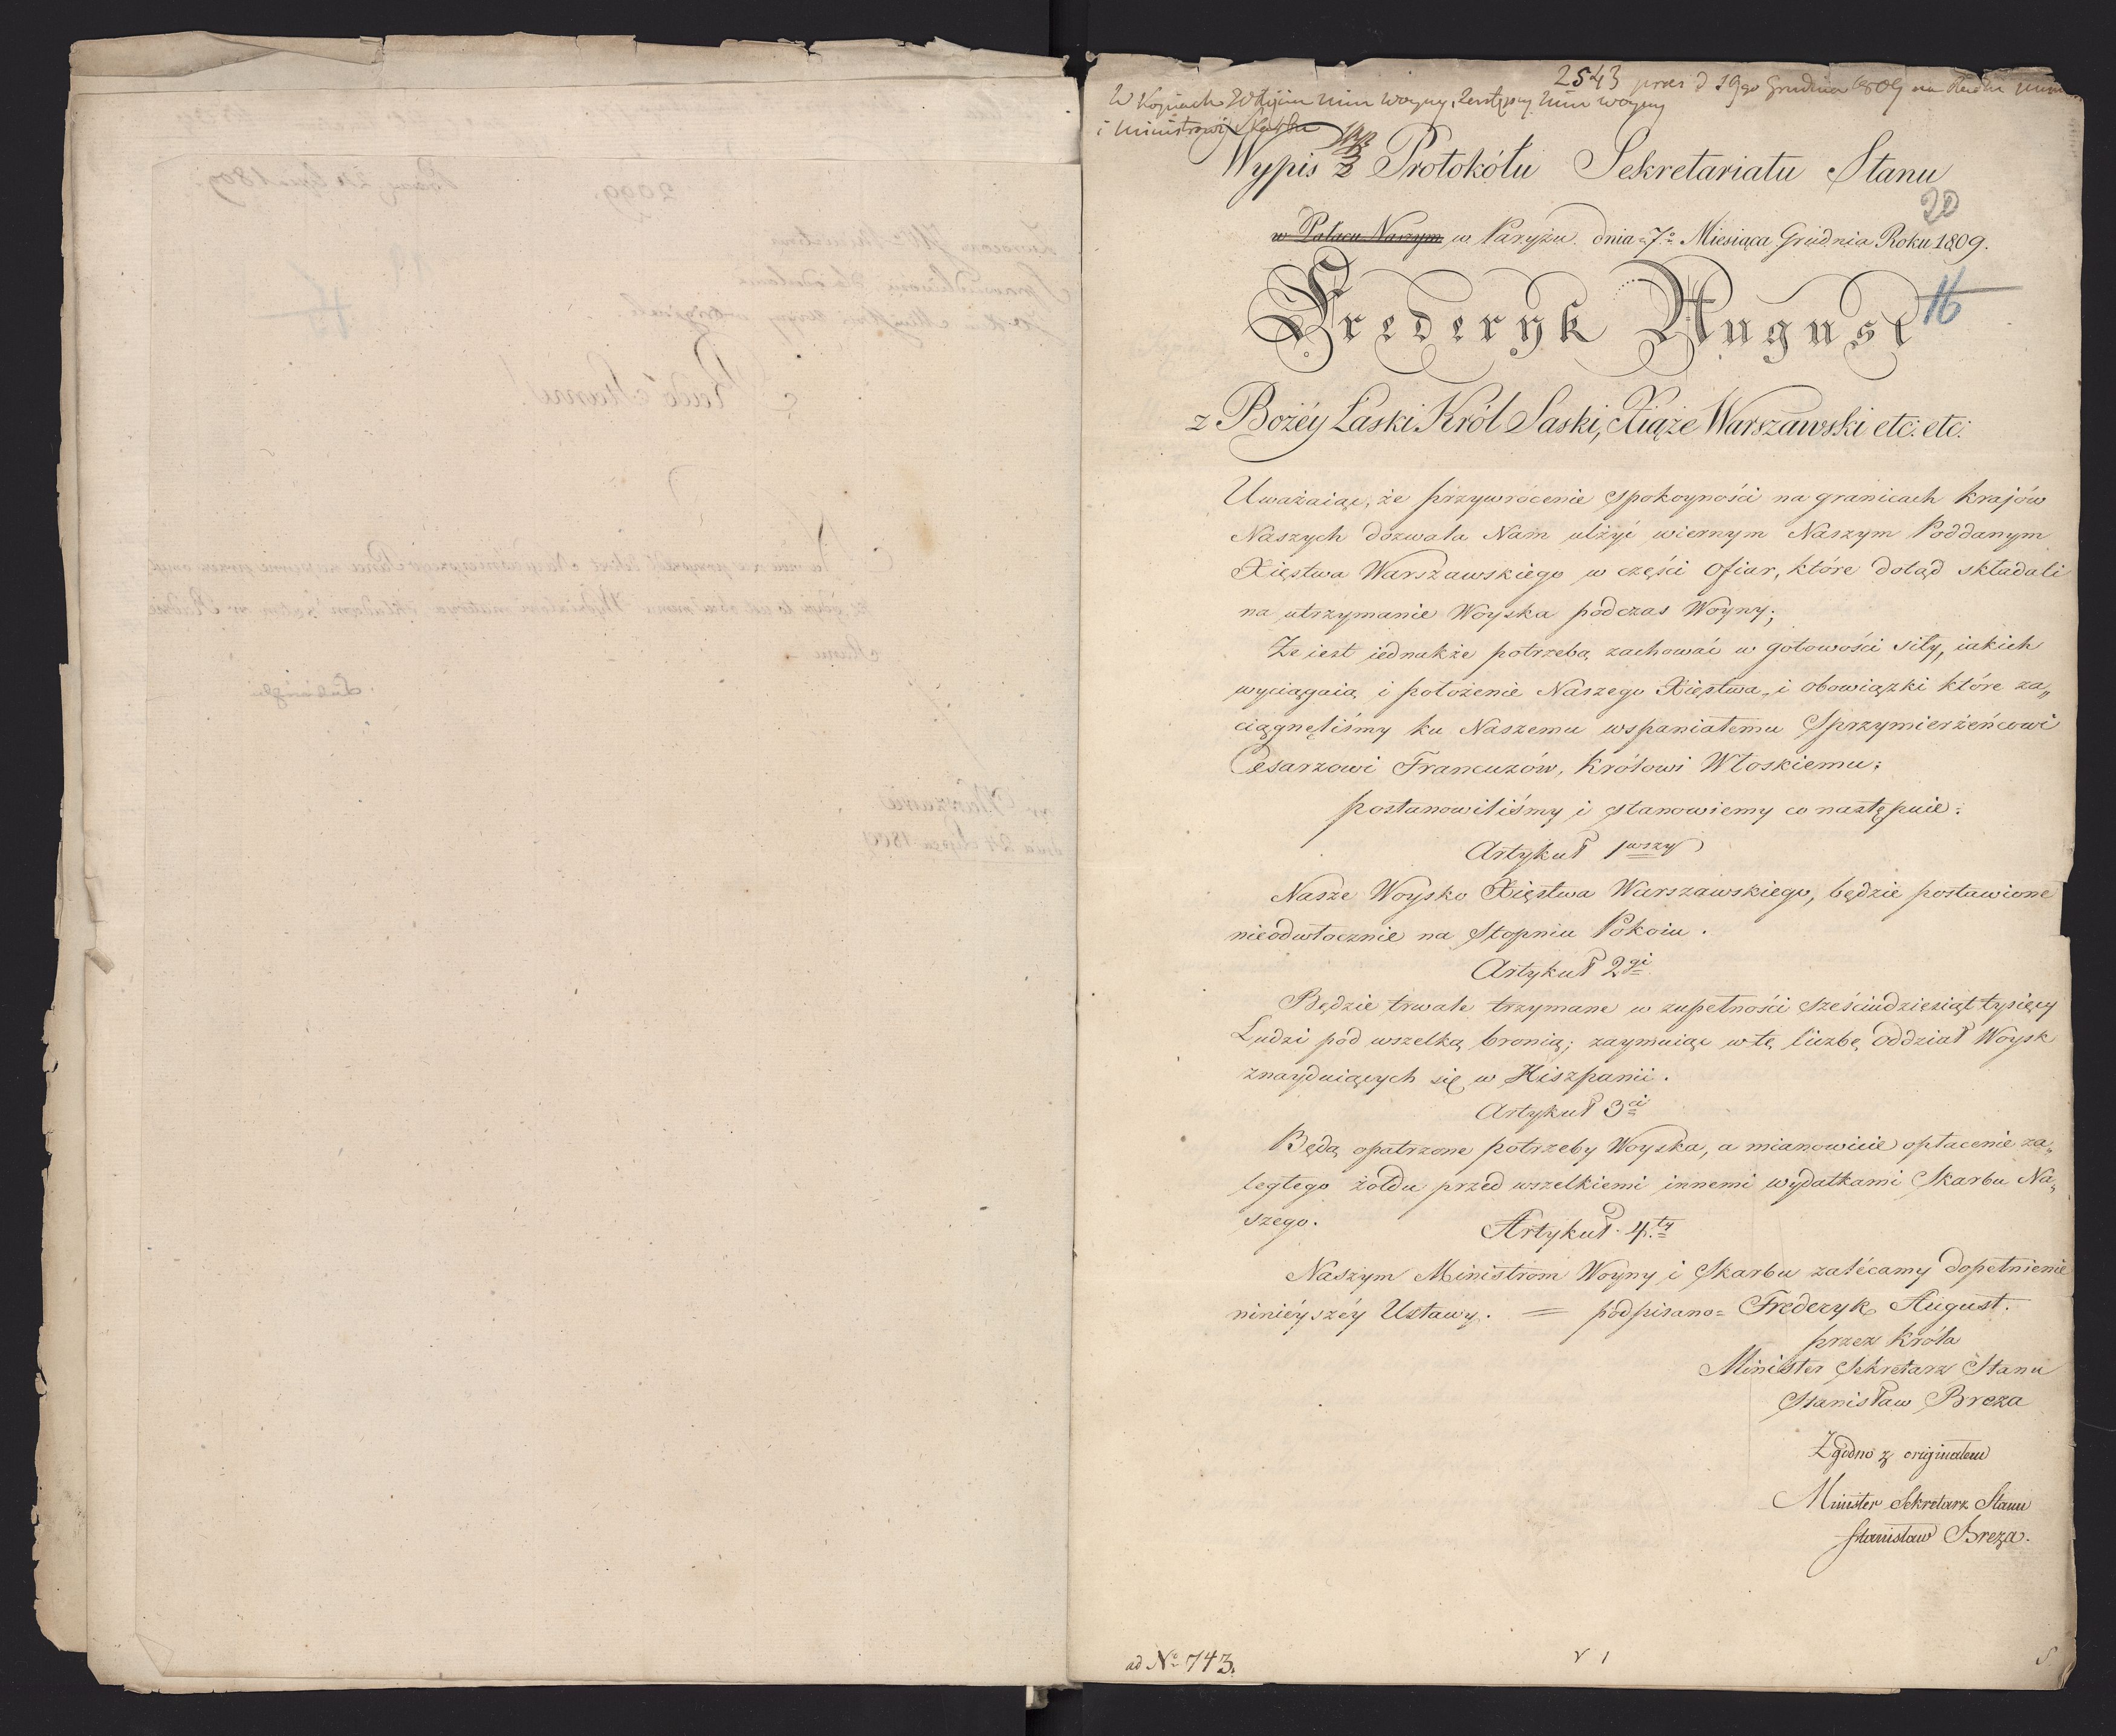 2543 pres d 19go Grudnia 1809 na Radzie
W Kopiach Xciu Min Woyny, Zastępcy Min Woyny
i Ministrowi Skarbu
Wypis z Protokółu Sekretariatu Stanu
20
w Pałacu Naszym w Paryżu. dnia 7o Miesiąca Grudnia Roku 1809.
Frederyk August
16
z Bożéy Łaski Król Saski, Xiąże Warszawski etc: etc:
Uważaiąc, że przywrócenie spokoyności na granicach krajów
Naszych dozwala Nam ulżyć wiernym Naszym Poddanym
Xięstwa Warszawskiego w części ofiar, które dotąd składali
na utrzymanie Woyska podczas Woyny;
Że iest iednakże potrzebą zachować w gotowości siły, iakich
wyciągaią i położenie Naszego Xięstwa, i obowiązki które za„
ciągnęliśmy ku Naszemu wspaniałemu Sprzymierzeńcowi
Cesarzowi Francuzów, Królowi Włoskiemu;
postanowiliśmy i stanowiemy co następuie:
Artykuł 1wszy
Nasze Woysko Xięstwa Warszawskiego, będzie postawione
nieodwłocznie na Stopniu Pokoiu.
Artykuł 2gi
Będzie trwale trzymane w zupełności sześciudziesiąt tysięcy
Ludzi pod wszelką bronią; zaymuiąc w tę liczbę, Oddział Woysk
znayduiących się w Hiszpanii.
Artykuł 3ci
Będą opatrzone potrzeby Woyska, a mianowicie opłacenie za„
ległego żołdu przed wszelkiemi innemi wydatkami Skarbu Na„
szego.
Artykuł 4ty
Naszym Ministrom Woyny i Skarbu zalécamy dopełnienie
ninieyszéy Ustawy. = podpisano= Frederyk August.
przez Króla
Minister Sekretarz Stanu
Stanisław Breza
Zgodno z originałem
Minister Sekretarz Stanu
Stanisław Breza.
ad No 743.